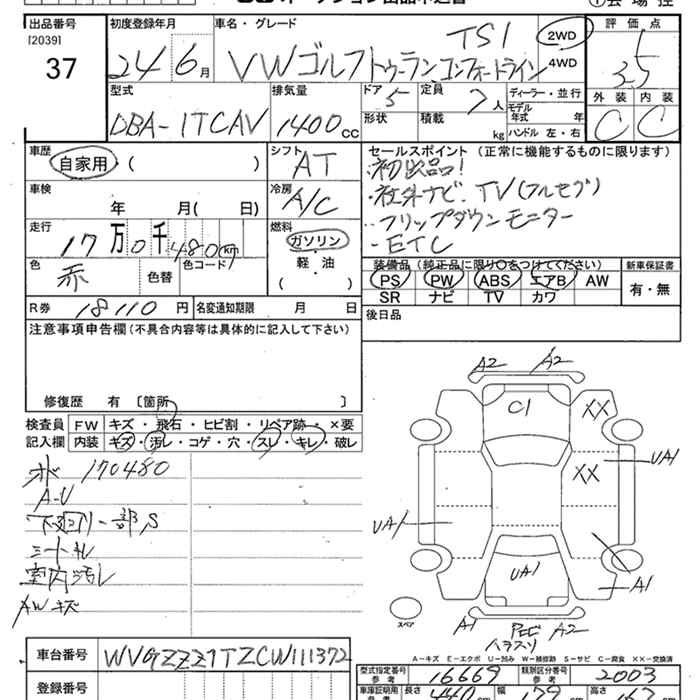 出品番号
[2039]
37
初度登録年月
24 6月
車名・グレード
TSI
VWゴルフトゥーランコンフォートライン
2WD
4WD
評価点
3.5
外装 内装
C C
型式
DBA-1TCAV
排気量
1400cc
ドア 5
形状
定員 7人
積載 kg
ディーラー・並行
モデル年式 年
ハンドル 左・右
車歴
自家用・( )
シフト
AT
車検
年 月( 日)
冷房
A/C
走行
17万0千480km
燃料
ガソリン
軽・油
( )
色
赤
色替
色コード( )
R券 18110円
名変通知期限 月 日
セールスポイント (正常に機能するものに限ります)
・初出品!
・社外ナビ、TV(フルセグ)
・フリップダウンモニター
・ETC
装備品 (純正品に限り○をつけてください)
PS PW ABS エアB AW
SR ナビ TV カワ
新車保証書
有・無
後日品
注意事項申告欄(不具合内容等は具体的に記入して下さい)
修復歴 有 [箇所 ]
検査員
記入欄
FW キズ・飛石・ヒビ割・リペア跡・×要
内装 キズ・汚レ・コゲ・穴・スレ・キレ・破レ
170480
A-U
下廻り一部S
シートキレ
室内汚レ
AWキズ
A2 A2
C1
XX
XX
UA1
UA1
UA1
A1
A1
A2
スペア
A-キズ E-エクボ U-凹み W-補修跡 S-サビ C-腐食 XX-交換済
車台番号 WVGZZZ1TZCW111372
登録番号
型式指定番号 参考 16669
類別区分番号 参考 2003
車庫証明用 長さ 440cm 幅 179cm 高さ